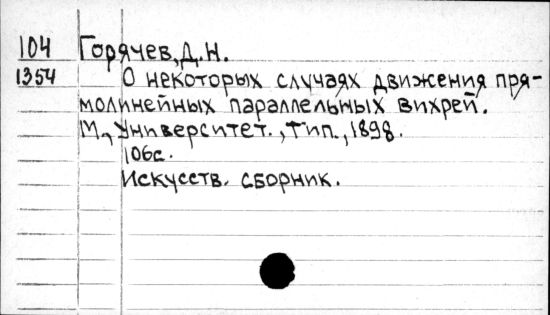 104 Горячев, Д.Н.
1354 О некоторых случаях движения пря-
молинейных параллельных вихрей.
М., Университет., тип., 1898.
106с.
Искусств. сборник.